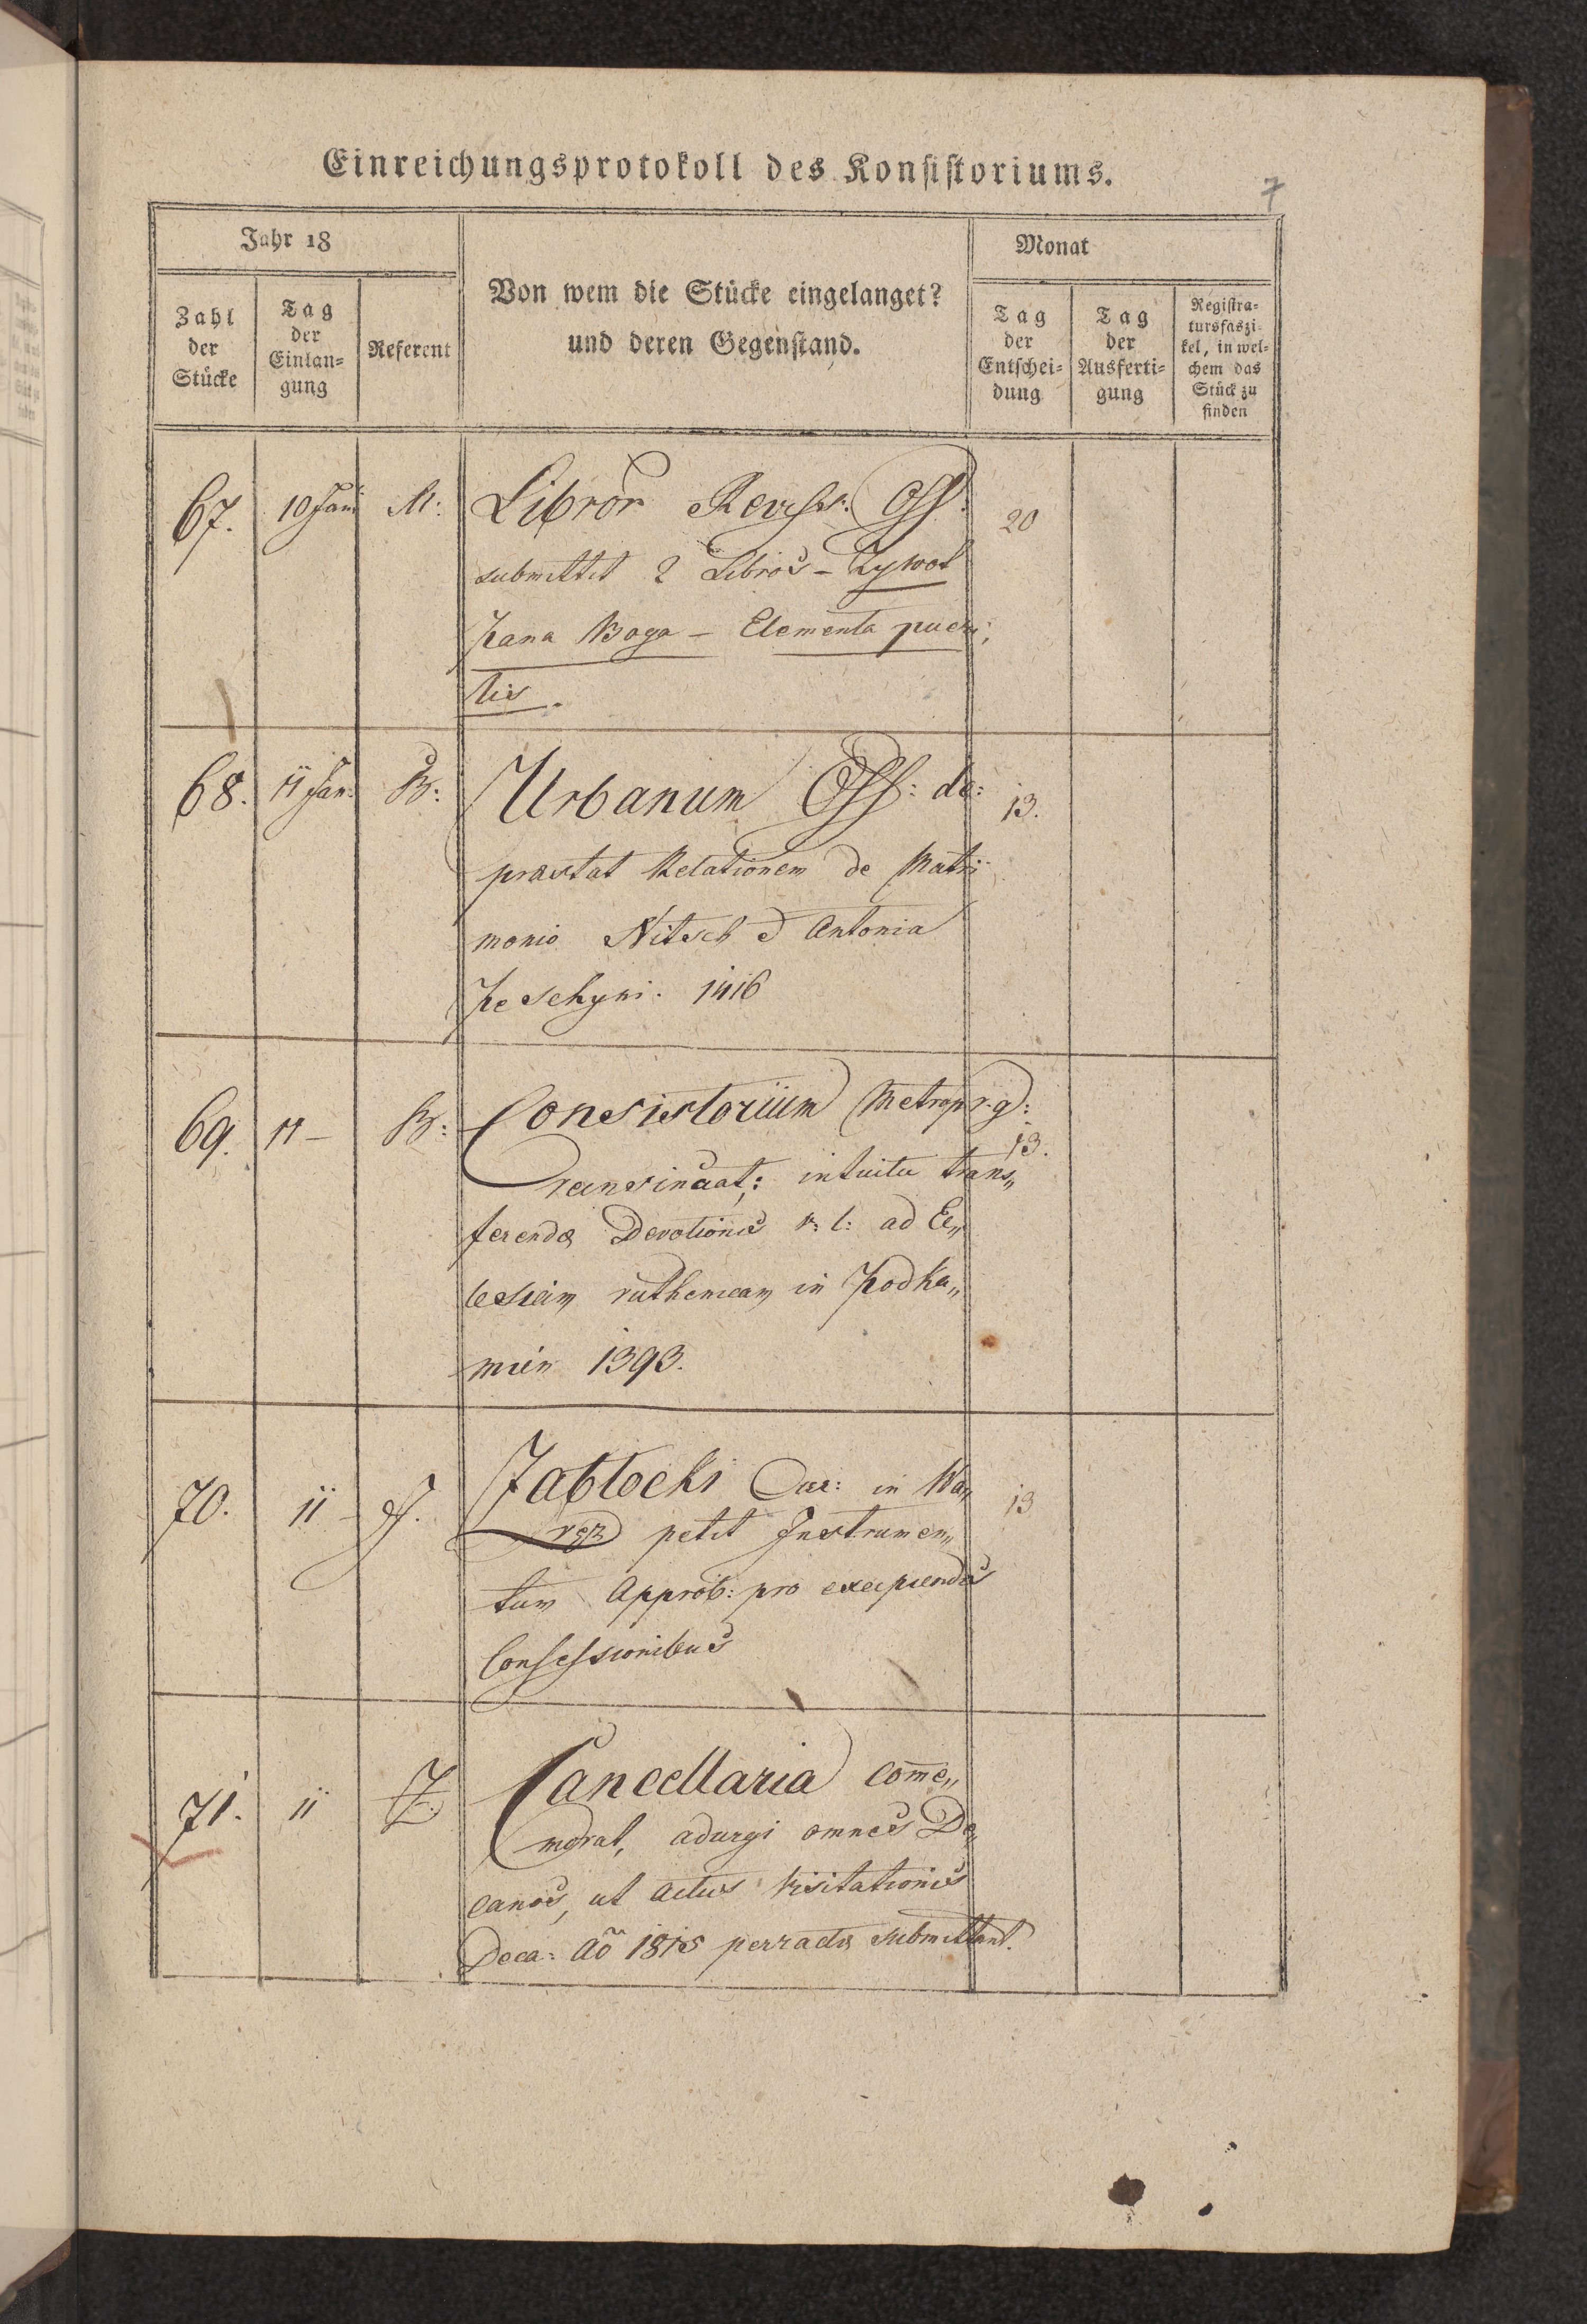 Einreichungsprotokoll des Konsistoriums.
7
Jahr 18
Monat
Zahl der Stücke
Tag der Einlangung
Referent
Von wem die Stücke eingelanget?
und deren Gegenstand.
Tag der Entscheidung
Tag der Ausfertigung
Registratursfaszikel, in welchem das Stück zu finden
67. 10 Jan: M: Libror Off: 20
submittit 2 Libros - Zywot
Pana Boga - Elementa pueri,
lis.
68. 11 Jan: B: Urbanum Off: de: 13.
praestat Relationem de Matri
monio Nitsch & Antonia
1416
69. 11 - B: Consistorium Metrop r. g:
13.
intuitu trans„
ferendae Devotionis r: l: ad Ec„
lesiam ruthenicam in Podka„
mien 1393.
70. 11 - J. Jabłocki Cur: in Wa„ 13
ręz petit Instrumen„
tum Approb: pro excipiendis
Confessionibus
71. 11 Z. Cancellaria come„
morat, adurgi omnes De„
canos, ut actus Visitationis
Deca: Aõ 1815 peractae submittant.